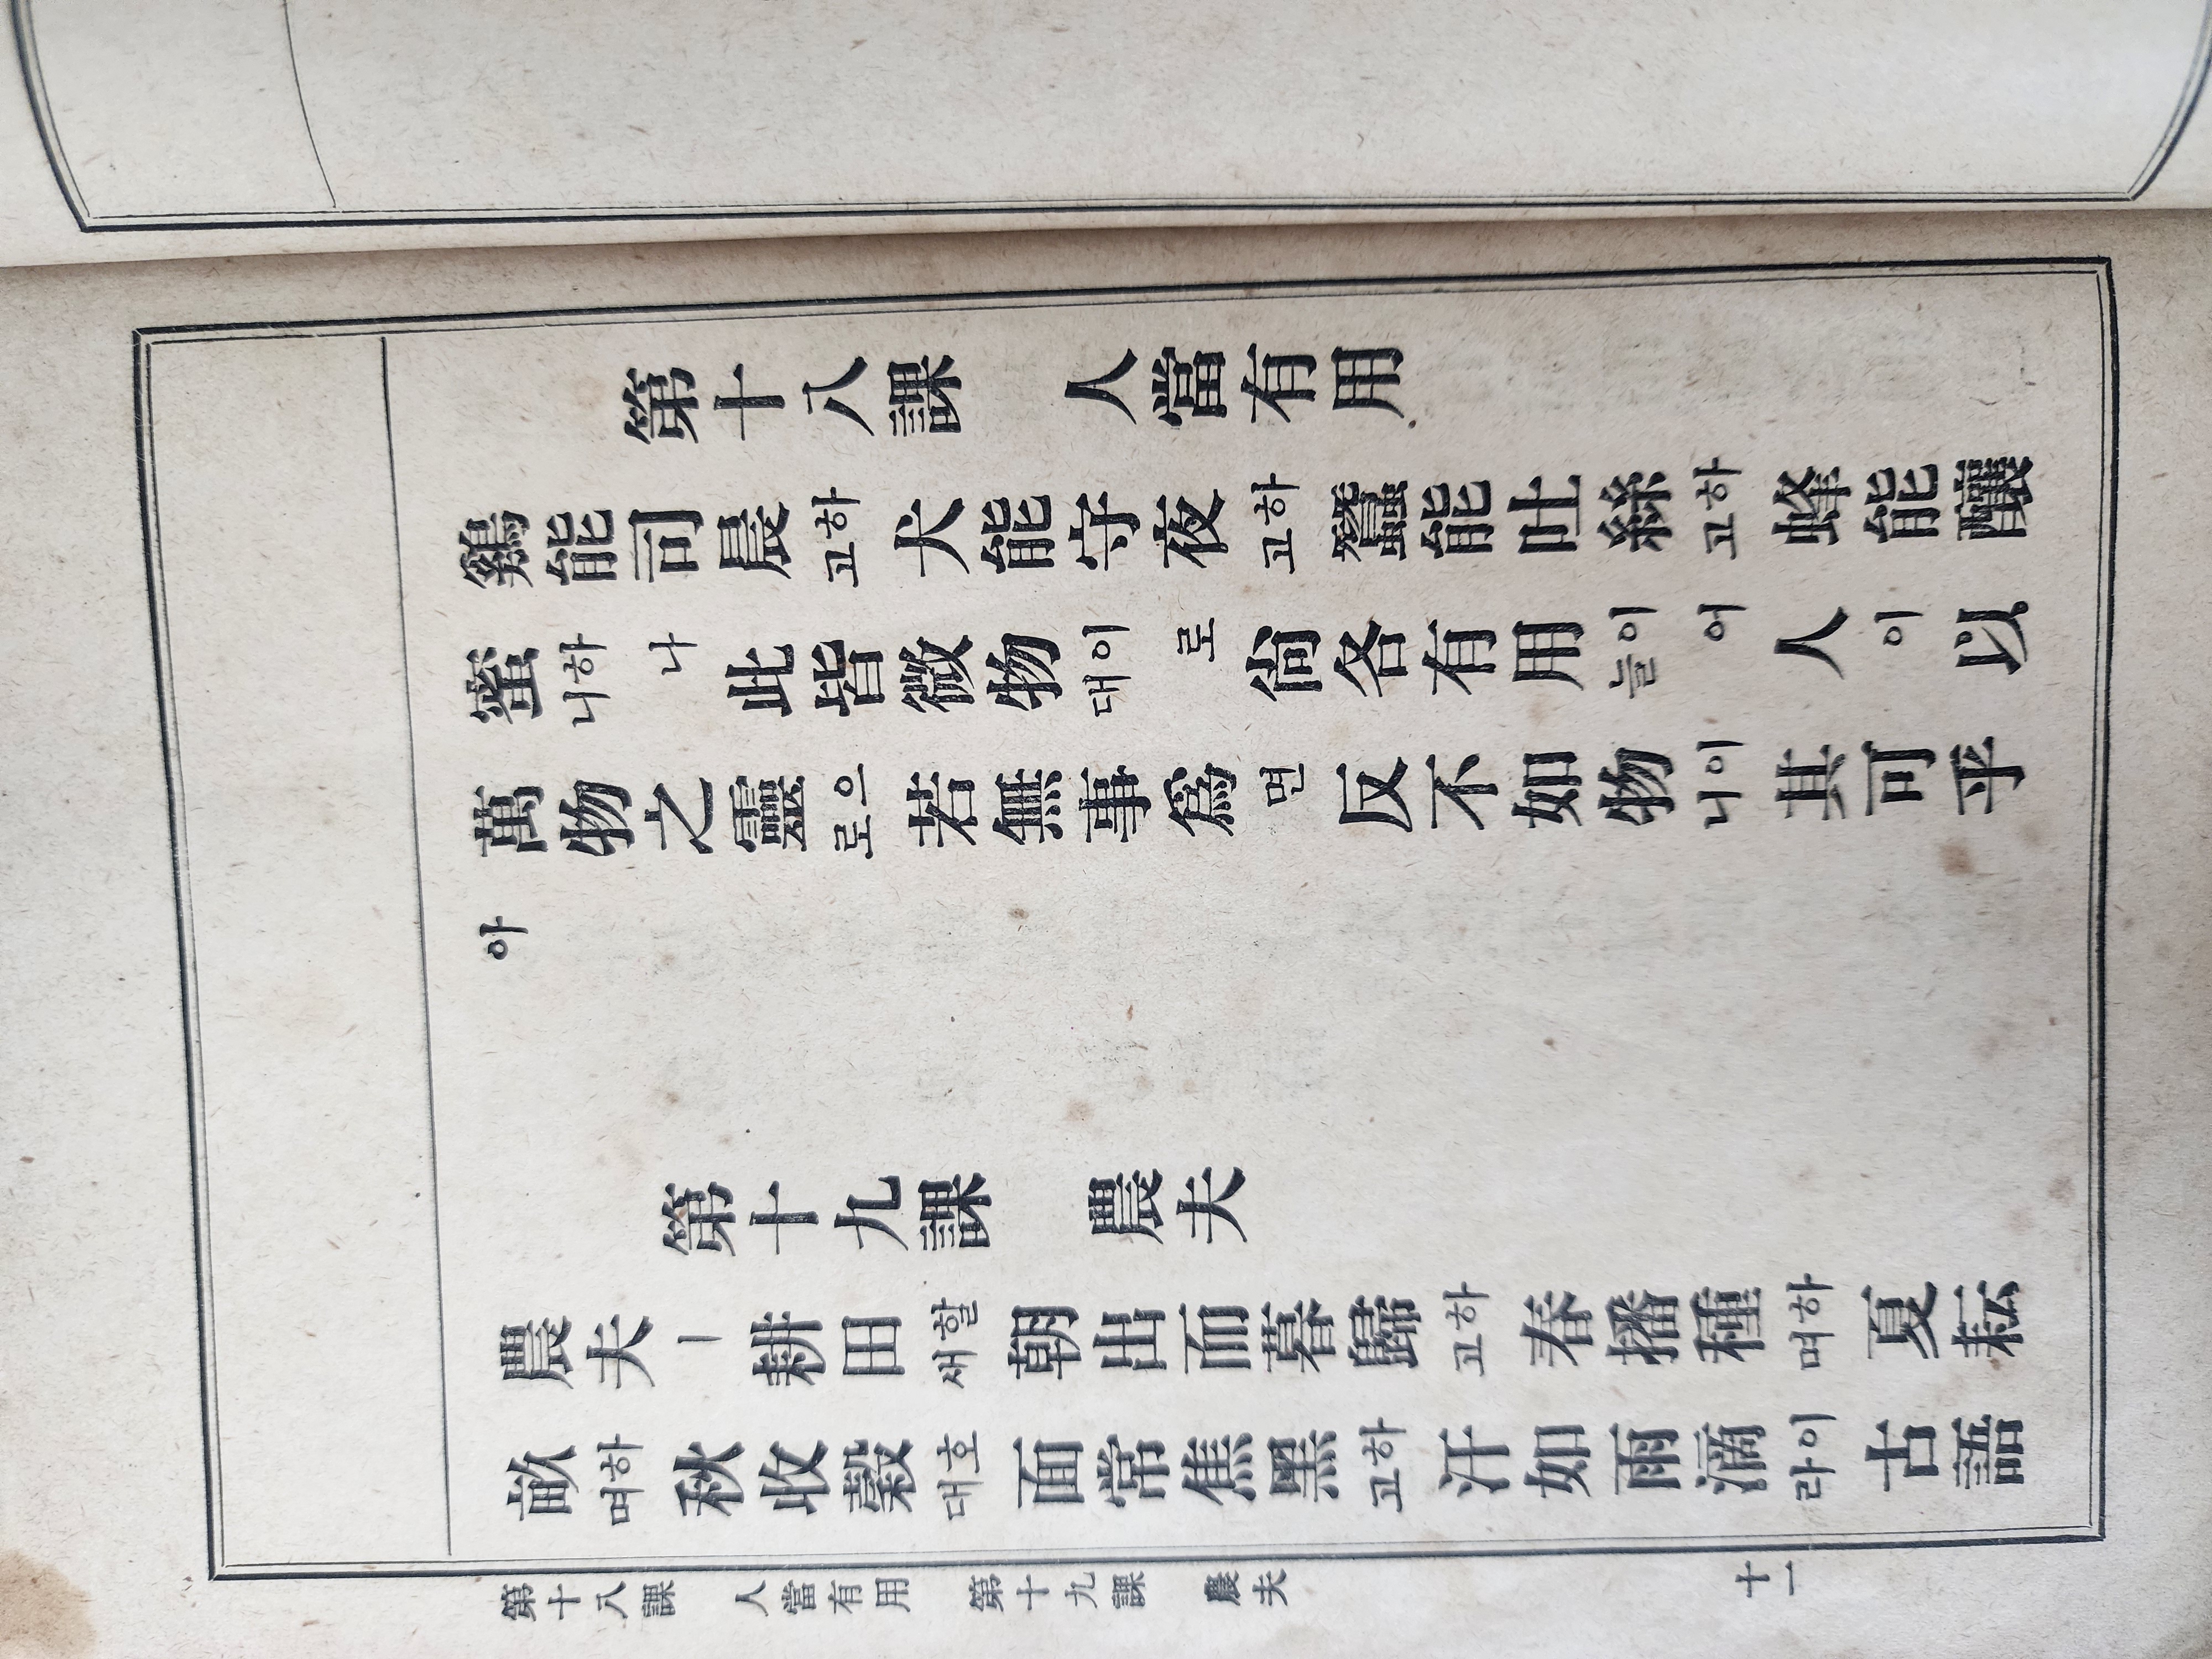 第十八課 人當有用
鷄能司晨하고 犬能守夜하고 蠶能吐絲하고 蜂能釀
蜜하니 나 此皆微物이대 로 尙各有用이늘 어 人이 以
萬物之靈으로 若無事爲면 反不如物이니 其可乎
아
第十九課 農夫
農夫ㅣ 耕田할새 朝出而暮歸하고 春播種하며 夏耘
畝하며 秋收穀호대 面常焦黑하고 汗如雨滴이라 古語
第十八課 人當有用 第十九課 農夫 十一